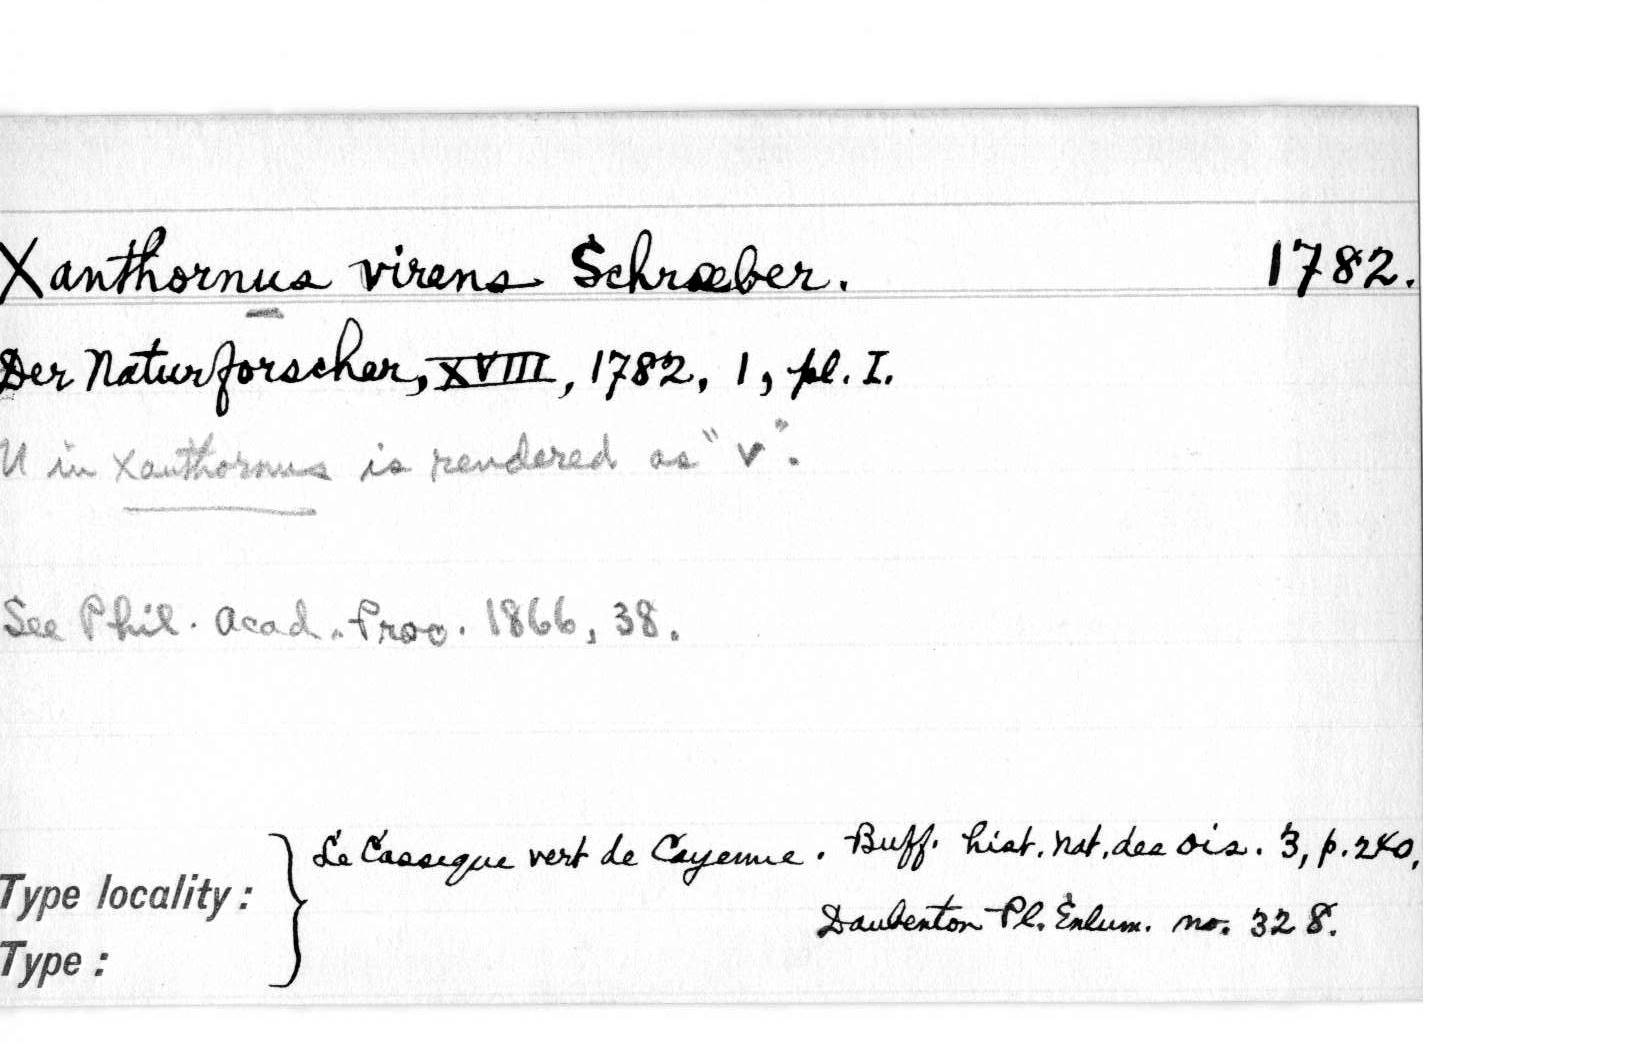 Xanthornus virens Schrœber. 1782.
Der Naturforscher, XVIII, 1782, 1, pl. I.
U in Xanthornus is rendered as "v".
See Phil. Acad. Proc. 1866, 38.
Le Cassique vert de Cayenne. Buff. hist. nat. des ois. 3, p. 240,
Daubenton Pl. Enlum. no. 328.
Type locality:
Type: